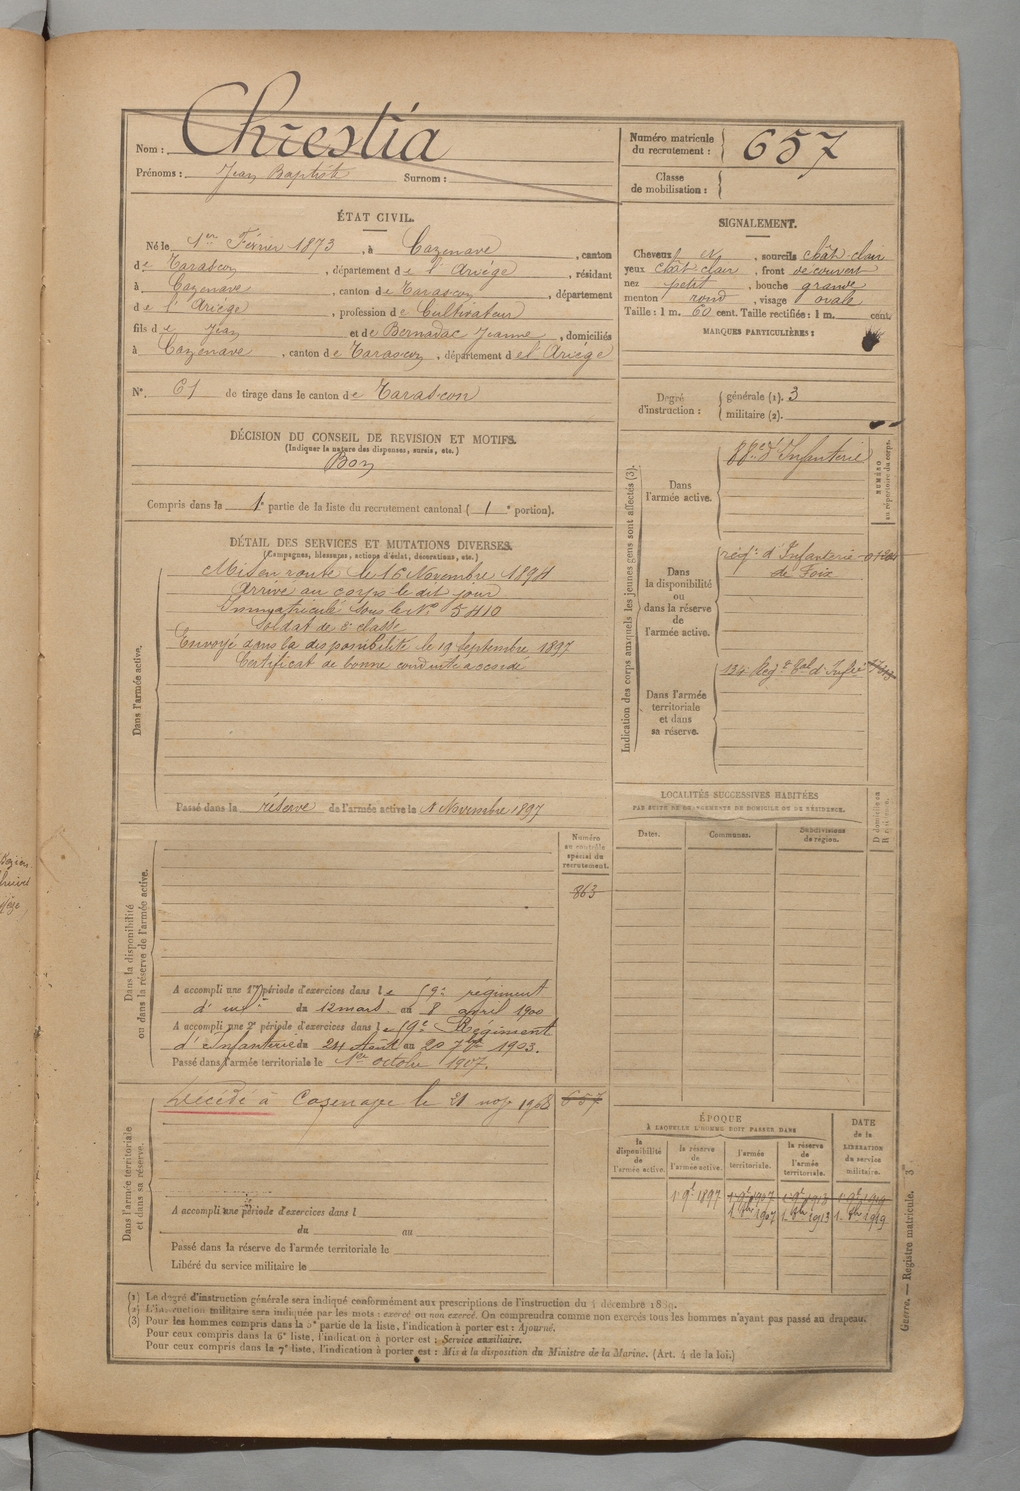 Nom : Chrestia
Prénoms : Jean Baptiste Surnom :
Numéro matricule du recrutement : 657
Classe de mobilisation :
ÉTAT CIVIL.
Né le 1er Février 1873, à Cazenave, canton
de Tarascon, département de l'Ariége, résidant
à Cazenave, canton de Tarascon, département
de l'Ariége, profession de Cultivateur
fils de Jean et de Bernadac Jeanne, domiciliés
à Cazenave, canton de Tarascon, département de l'Ariége
N°. 61 de tirage dans le canton de Tarascon
SIGNALEMENT.
Cheveux et, sourcils chât. clair
yeux chât clair, front découvert
nez petit, bouche grande
menton rond, visage ovale
Taille : 1 m. 60 cent. Taille rectifiée : 1 m. cent.
MARQUES PARTICULIÈRES :
Degré d'instruction : générale (1). 3
militaire (2).
DÉCISION DU CONSEIL DE REVISION ET MOTIFS.
(Indiquer la nature des dispenses, sursis, etc.)
Bon
Compris dans la 1e partie de la liste du recrutement cantonal ( 1 e portion).
DÉTAIL DES SERVICES ET MUTATIONS DIVERSES.
(Campagnes, blessures, actions d'éclat, décorations, etc.)
Dans l'armée active.
Mis en route le 16 Novembre 1894
Arrivé au corps le dit jour
Immatriculé sous le N° 5410
Soldat de 2e classe
Envoyé dans la disponibilité le 19 Septembre 1897
Certificat de bonne conduite accordé
Passé dans la réserve de l'armée active le 1 Novembre 1897
Indication des corps auxquels les jeunes gens sont affectés (3).
NUMÉRO au répertoire du corps.
Dans l'armée active.
d'Infanterie
Dans la disponibilité ou dans la réserve de l'armée active.
régt d'Infanterie
de Foix
Dans l'armée territoriale et dans sa réserve.
134e Régt tal d'Infie
LOCALITÉS SUCCESSIVES HABITÉES
PAR SUITE DE CHANGEMENTS DE DOMICILE OU DE RÉSIDENCE.
Dates.
Communes.
Subdivisions de région.
D domicile ou R résidence.
Dans la disponibilité ou dans la réserve de l'armée active.
Numéro au contrôle spécial du recrutement.
863
A accompli une 1re période d'exercices dans le 59e régiment
d'infie du 12 mars au 8 avril 1900
A accompli une 2e période d'exercices dans le 59e Régiment
d'Infanterie du 24 Août au 20 7bre 1903.
Passé dans l'armée territoriale le 1er octobre 1907.
Dans l'armée territoriale et dans sa réserve.
Décédé à Cazenave le 21 nov 1908
657
A accompli une période d'exercices dans l
du au
Passé dans la réserve de l'armée territoriale le
Libéré du service militaire le
ÉPOQUE
À LAQUELLE L'HOMME DOIT PASSER DANS
la disponibilité de l'armée active.
la réserve de l'armée active.
l'armée territoriale.
la réserve de l'armée territoriale.
DATE de la LIBÉRATION du service militaire.
1r 9e 1897
1r 9e 1907
1r 9e 1913
1r 9e 1919
1. 8bre 1907
1. 8bre 1913
1. 8bre 1919
(1) Le degré d'instruction générale sera indiqué conformément aux prescriptions de l'instruction du 4 décembre 1889.
(2) L'instruction militaire sera indiquée par les mots : exercé ou non exercé. On comprendra comme non exercés tous les hommes n'ayant pas passé au drapeau.
(3) Pour les hommes compris dans la 5e partie de la liste, l'indication à porter est : Ajourné.
Pour ceux compris dans la 6e liste, l'indication à porter est : Service auxiliaire.
Pour ceux compris dans la 7e liste, l'indication à porter est : Mis à la disposition du Ministre de la Marine. (Art. 4 de la loi.)
Guerre. — Registre matricule.